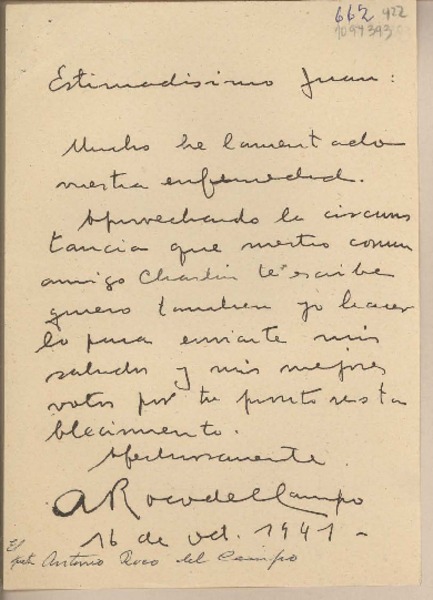 662 922
1094393
Estimadisimo Juan:
Mucho he lamentado
vuestra enfermedad.
Aprovechando la circuns
tancia que nuestro comun
amigo Charlin te escribe
quiero tambien yo hacer
lo para enviarte mis
saludos y mis mejores
votos por tu pronto resta
blecimiento.
Afectuosamente
A Roco del Campo
16 de oct. 1941 -
El
poeta Antonio Roco del Campo